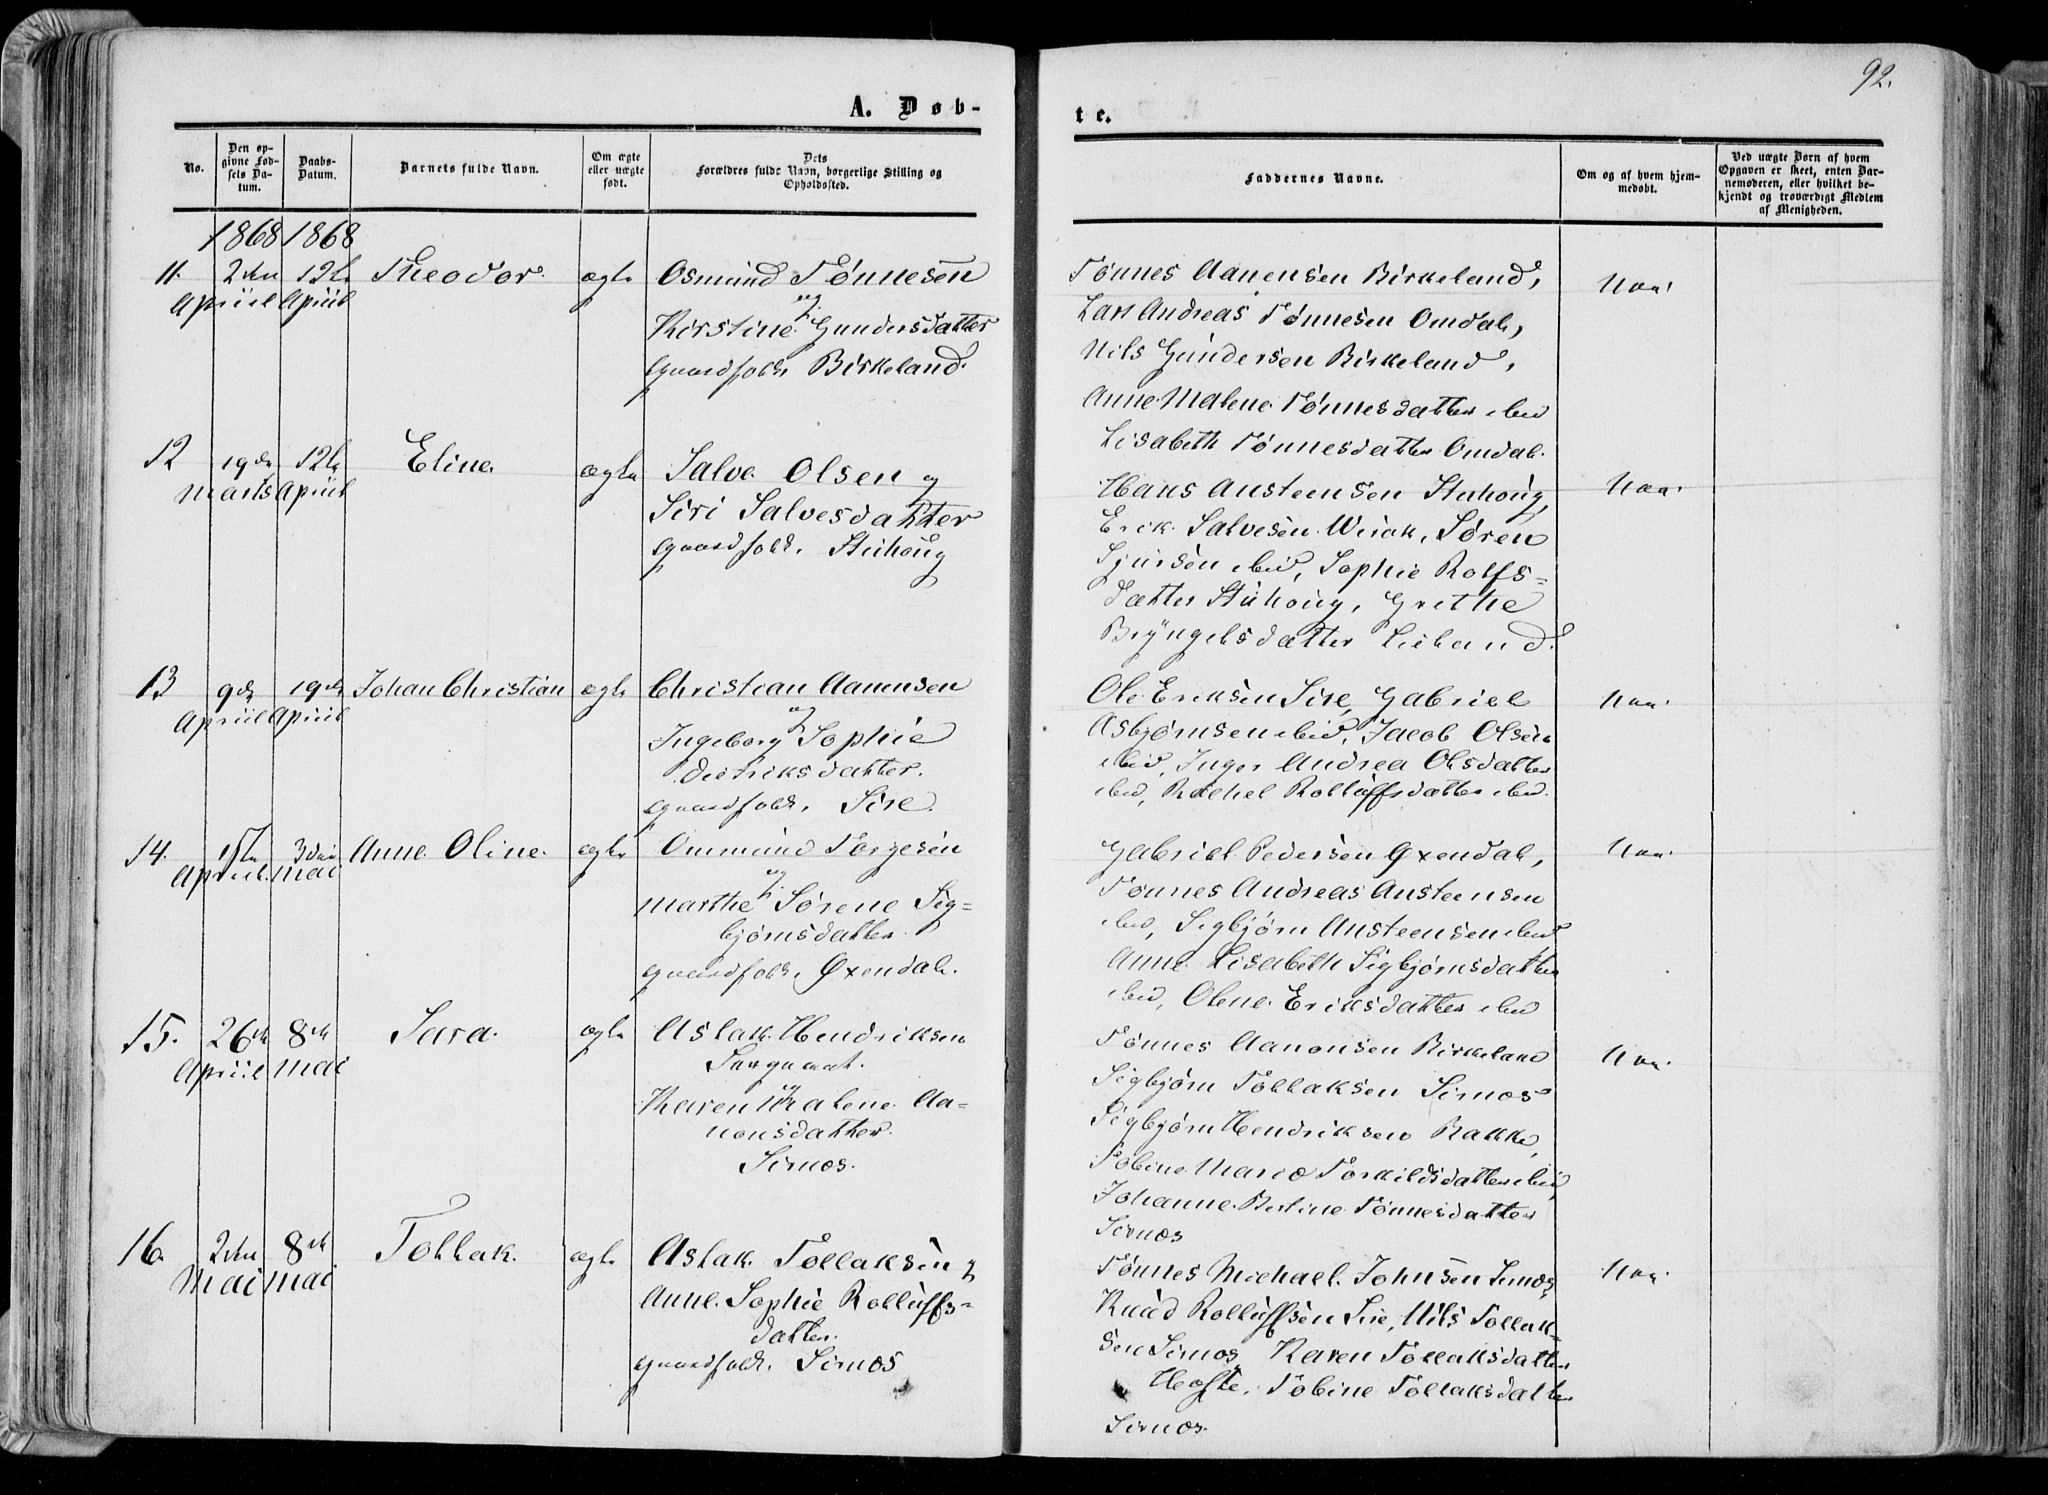 92.
A. Døb-
te.
No.
Den op-
givne Fød-
sels Da-
tum.
Daabs-
Datum.
Barnets fulde Navn.
Om ægte
eller uægte
født.
Dets
Forældres fulde Navn, borgerlige Stilling og
Opholdssted.
Faddernes Navne.
Om og af hvem hjem-
medøbt.
Ved uægte Børn af hvem
Opgaven er skeet, enten Bar-
nemoderen, eller hvilket be-
kjendt og troværdigt Medlem
af Menigheden.
1868 1868
11. 2den 12te Theodor. ægte Osmund Tønnesen
April April og
Kirstine Gundersdatter
gaardfolk. Birkeland.
Tønnes Aanensen Birkeland,
Lars Andreas Tønnesen Omdal,
Nils Gundersen Birkeland,
Anne Malene Tønnesdatter ibid
Lisabeth Tønnesdatter Omdal.
12 19de 12te Eline. ægte Salve Olsen og
Marts April
Siri Salvesdatter
gaardfolk. Stuhoug
Hans Austeensen Stuhoug,
Erik Salvesen Wirak, Søren
Sjursen ibid, Sophie Rolfs=
datter Stuhoug, Grethe
Bryngelsdatter Lieland.
13 9de 19de Johan Christian ægte Christian Aanensen
April April og
Ingeborg Sophie
Diriksdatter.
gaardfolk. Sire.
Ole Eriksen Sire, Gabriel
Asbjørnsen ibid, Jacob Olsen
ibid, Inger Andrea Olsdatter
ibid, Rachel Rolluffsdatter ibid.
14. 3die Anne Oline. ægte Ommund Torgesen
April. Mai og
Marthe Sørene Sig=
bjørnsdatter.
gaardfolk. Øxendal.
Gabriel Pedersen Øxendal,
Tønnes Andreas Austeensen
ibid, Sigbjørn Austeensen ibid
Anne Lisabeth Sigbjørnsdatter
ibid, Olene Eriksdatter ibid
15. 26de 8de Sara. ægte Aslak Hendriksen
April Mai
og
Karen Malene Aa=
nonsdatter.
Sirnos.
Tønnes Aanonsen Birkeland
Sigbjørn Tollaksen Sirnos
Sigbjørn Hendriksen Rakke,
Tobine Marie Torkildsdatter ibid
Johanne Bertine Tønnesdatter
Sirnos
16. 2den 8de Tollak. ægte Aslak Tollaksen og
Mai Mai
Anne Sophie Rolluffs=
datter.
gaardfolk. Sirnos
Tønnes Michael Johnsen Sirnos,
Knud Rolluffsen Sire, Nils Tollak=
sen Sirnos, Karen Tollaksdatter
Hafte, Tobine Tollaksdatter
Sirnos.